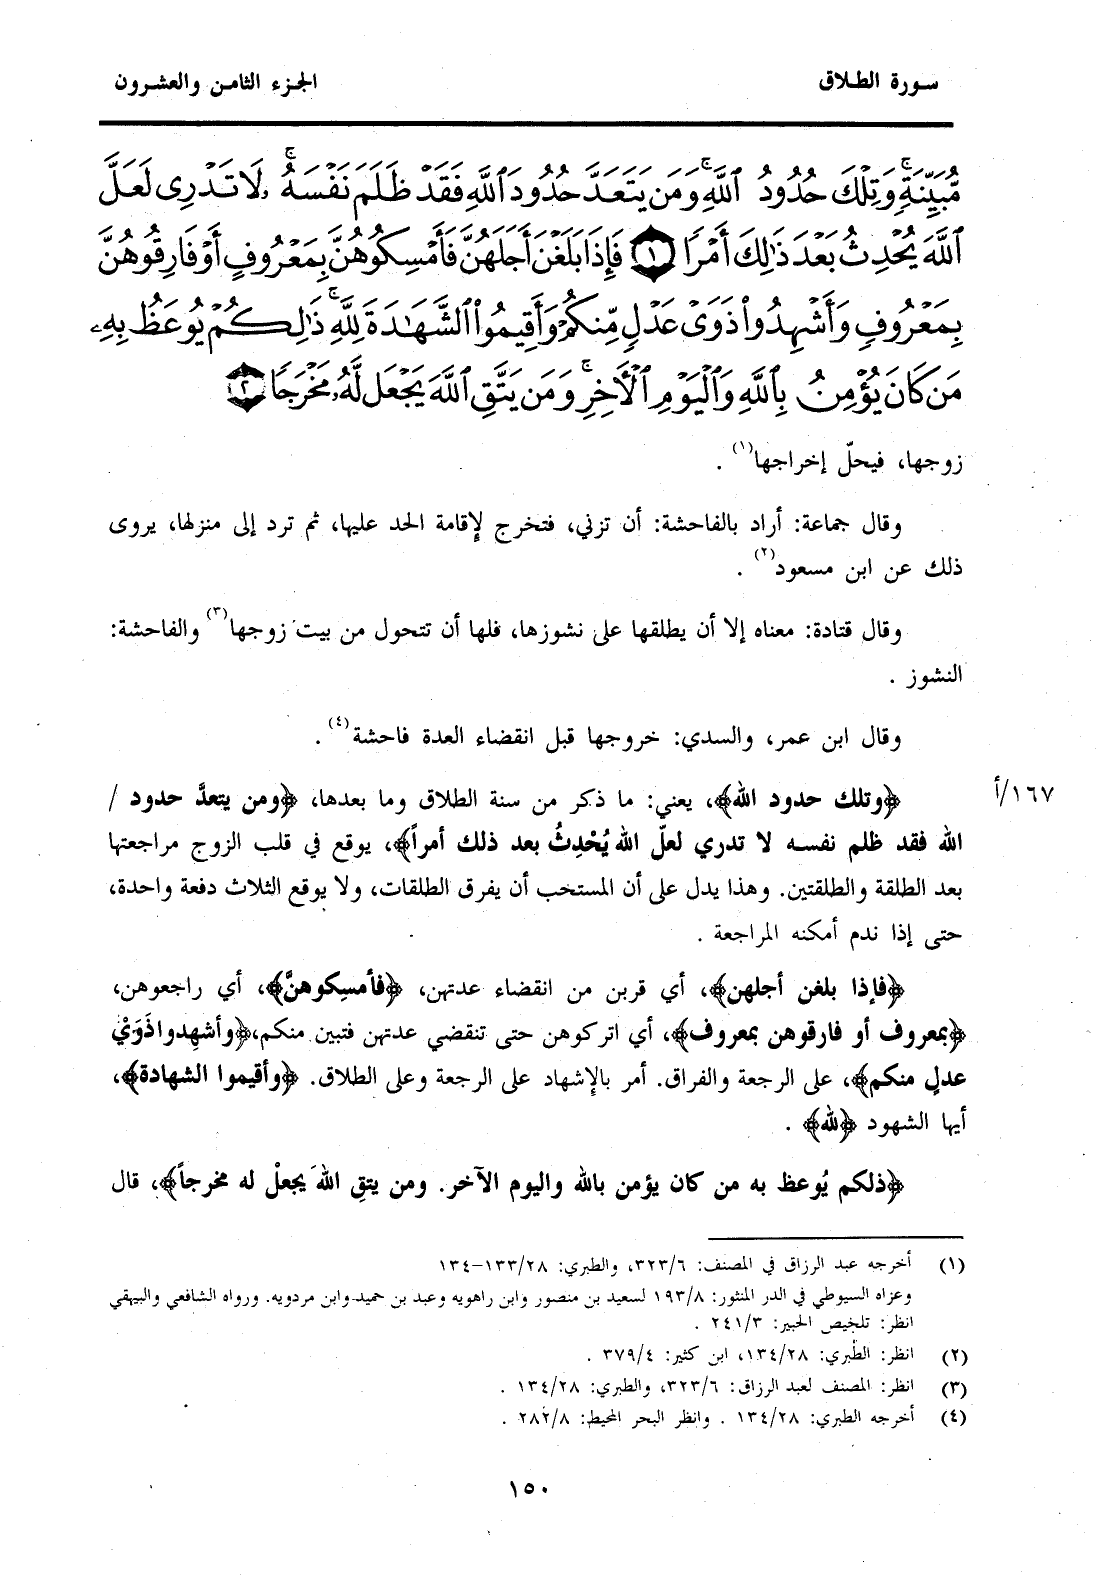 سورة الطلاق
الجزء الثامن والعشرون
مُّبَيِّنَةٍ ۚ وَتِلْكَ حُدُودُ ٱللَّهِ ۚ وَمَن يَتَعَدَّ حُدُودَ ٱللَّهِ فَقَدْ ظَلَمَ نَفْسَهُۥ ۚ لَا تَدْرِى لَعَلَّ
ٱللَّهَ يُحْدِثُ بَعْدَ ذَٰلِكَ أَمْرًا ١ فَإِذَا بَلَغْنَ أَجَلَهُنَّ فَأَمْسِكُوهُنَّ بِمَعْرُوفٍ أَوْ فَارِقُوهُنَّ
بِمَعْرُوفٍ وَأَشْهِدُوا۟ ذَوَىْ عَدْلٍ مِّنكُمْ وَأَقِيمُوا۟ ٱلشَّهَـٰدَةَ لِلَّهِ ۚ ذَٰلِكُمْ يُوعَظُ بِهِۦ
مَن كَانَ يُؤْمِنُ بِٱللَّهِ وَٱلْيَوْمِ ٱلْـَٔاخِرِ ۚ وَمَن يَتَّقِ ٱللَّهَ يَجْعَل لَّهُۥ مَخْرَجًا ٢
زوجها، فيحلّ إخراجها(١) .
وقال جماعة: أراد بالفاحشة: أن تزني، فتخرج لإقامة الحد عليها، ثم ترد إلى منزلها، يروى
ذلك عن ابن مسعود(٢) .
وقال قتادة: معناه إلا أن يطلقها على نشوزها، فلها أن تتحول من بيت زوجها(٣) والفاحشة:
النشوز .
وقال ابن عمر، والسدي: خروجها قبل انقضاء العدة فاحشة(٤) .
﴿وتلك حدود الله﴾، يعني: ما ذكر من سنة الطلاق وما بعدها، ﴿ومن يتعدَّ حدود / ١٦٧/أ
الله فقد ظلم نفسه لا تدري لعلّ الله يُحْدِثُ بعد ذلك أمراً﴾، يوقع في قلب الزوج مراجعتها
بعد الطلقة والطلقتين. وهذا يدل على أن المستحب أن يفرق الطلقات، ولا يوقع الثلاث دفعة واحدة،
حتى إذا ندم أمكنه المراجعة .
﴿فإذا بلغن أجلهن﴾، أي قربن من انقضاء عدتهن، ﴿فأمسِكوهنَّ﴾، أي راجعوهن،
﴿بمعروف أو فارقوهن بمعروف﴾، أي اتركوهن حتى تنقضي عدتهن فتبين منكم، ﴿وأشهِدوا ذَوَيْ
عدلٍ منكم﴾، على الرجعة والفراق. أمر بالإشهاد على الرجعة وعلى الطلاق. ﴿وأقيموا الشهادة﴾،
أيها الشهود ﴿لله﴾ .
﴿ذلكم يُوعظ به من كان يؤمن بالله واليوم الآخر. ومن يتقِ اللهَ يجعلْ له مخرجاً﴾، قال
(١) أخرجه عبد الرزاق في المصنف: ٣٢٣/٦، والطبري: ١٣٣/٢٨-١٣٤
وعزاه السيوطي في الدر المنثور: ١٩٣/٨ لسعيد بن منصور وابن راهويه وعبد بن حميد وابن مردويه. ورواه الشافعي والبيهقي
انظر: تلخيص الحبير: ٢٤١/٣ .
(٢) انظر: الطبري: ١٣٤/٢٨، ابن كثير: ٣٧٩/٤ .
(٣) انظر: المصنف لعبد الرزاق: ٣٢٣/٦، والطبري: ١٣٤/٢٨ .
(٤) أخرجه الطبري: ١٣٤/٢٨ . وانظر البحر المحيط: ٢٨٢/٨ .
١٥٠